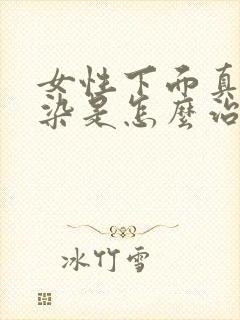 女性下面真
染是怎麼治
冰竹雪